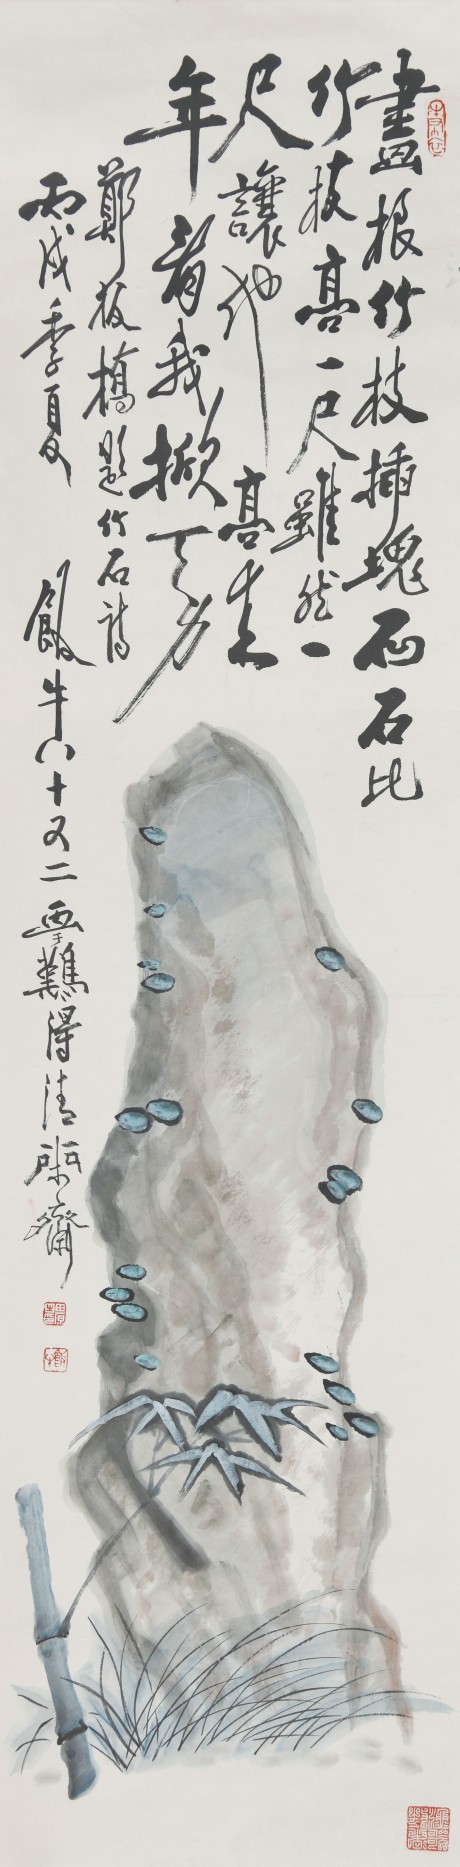 畫根竹枝插塊石石比
竹枝高一尺雖然一
尺讓他高來
年看我掀天力
鄭板橋題竹石詩
丙戌季夏 飯牛八十又二 難得清齋